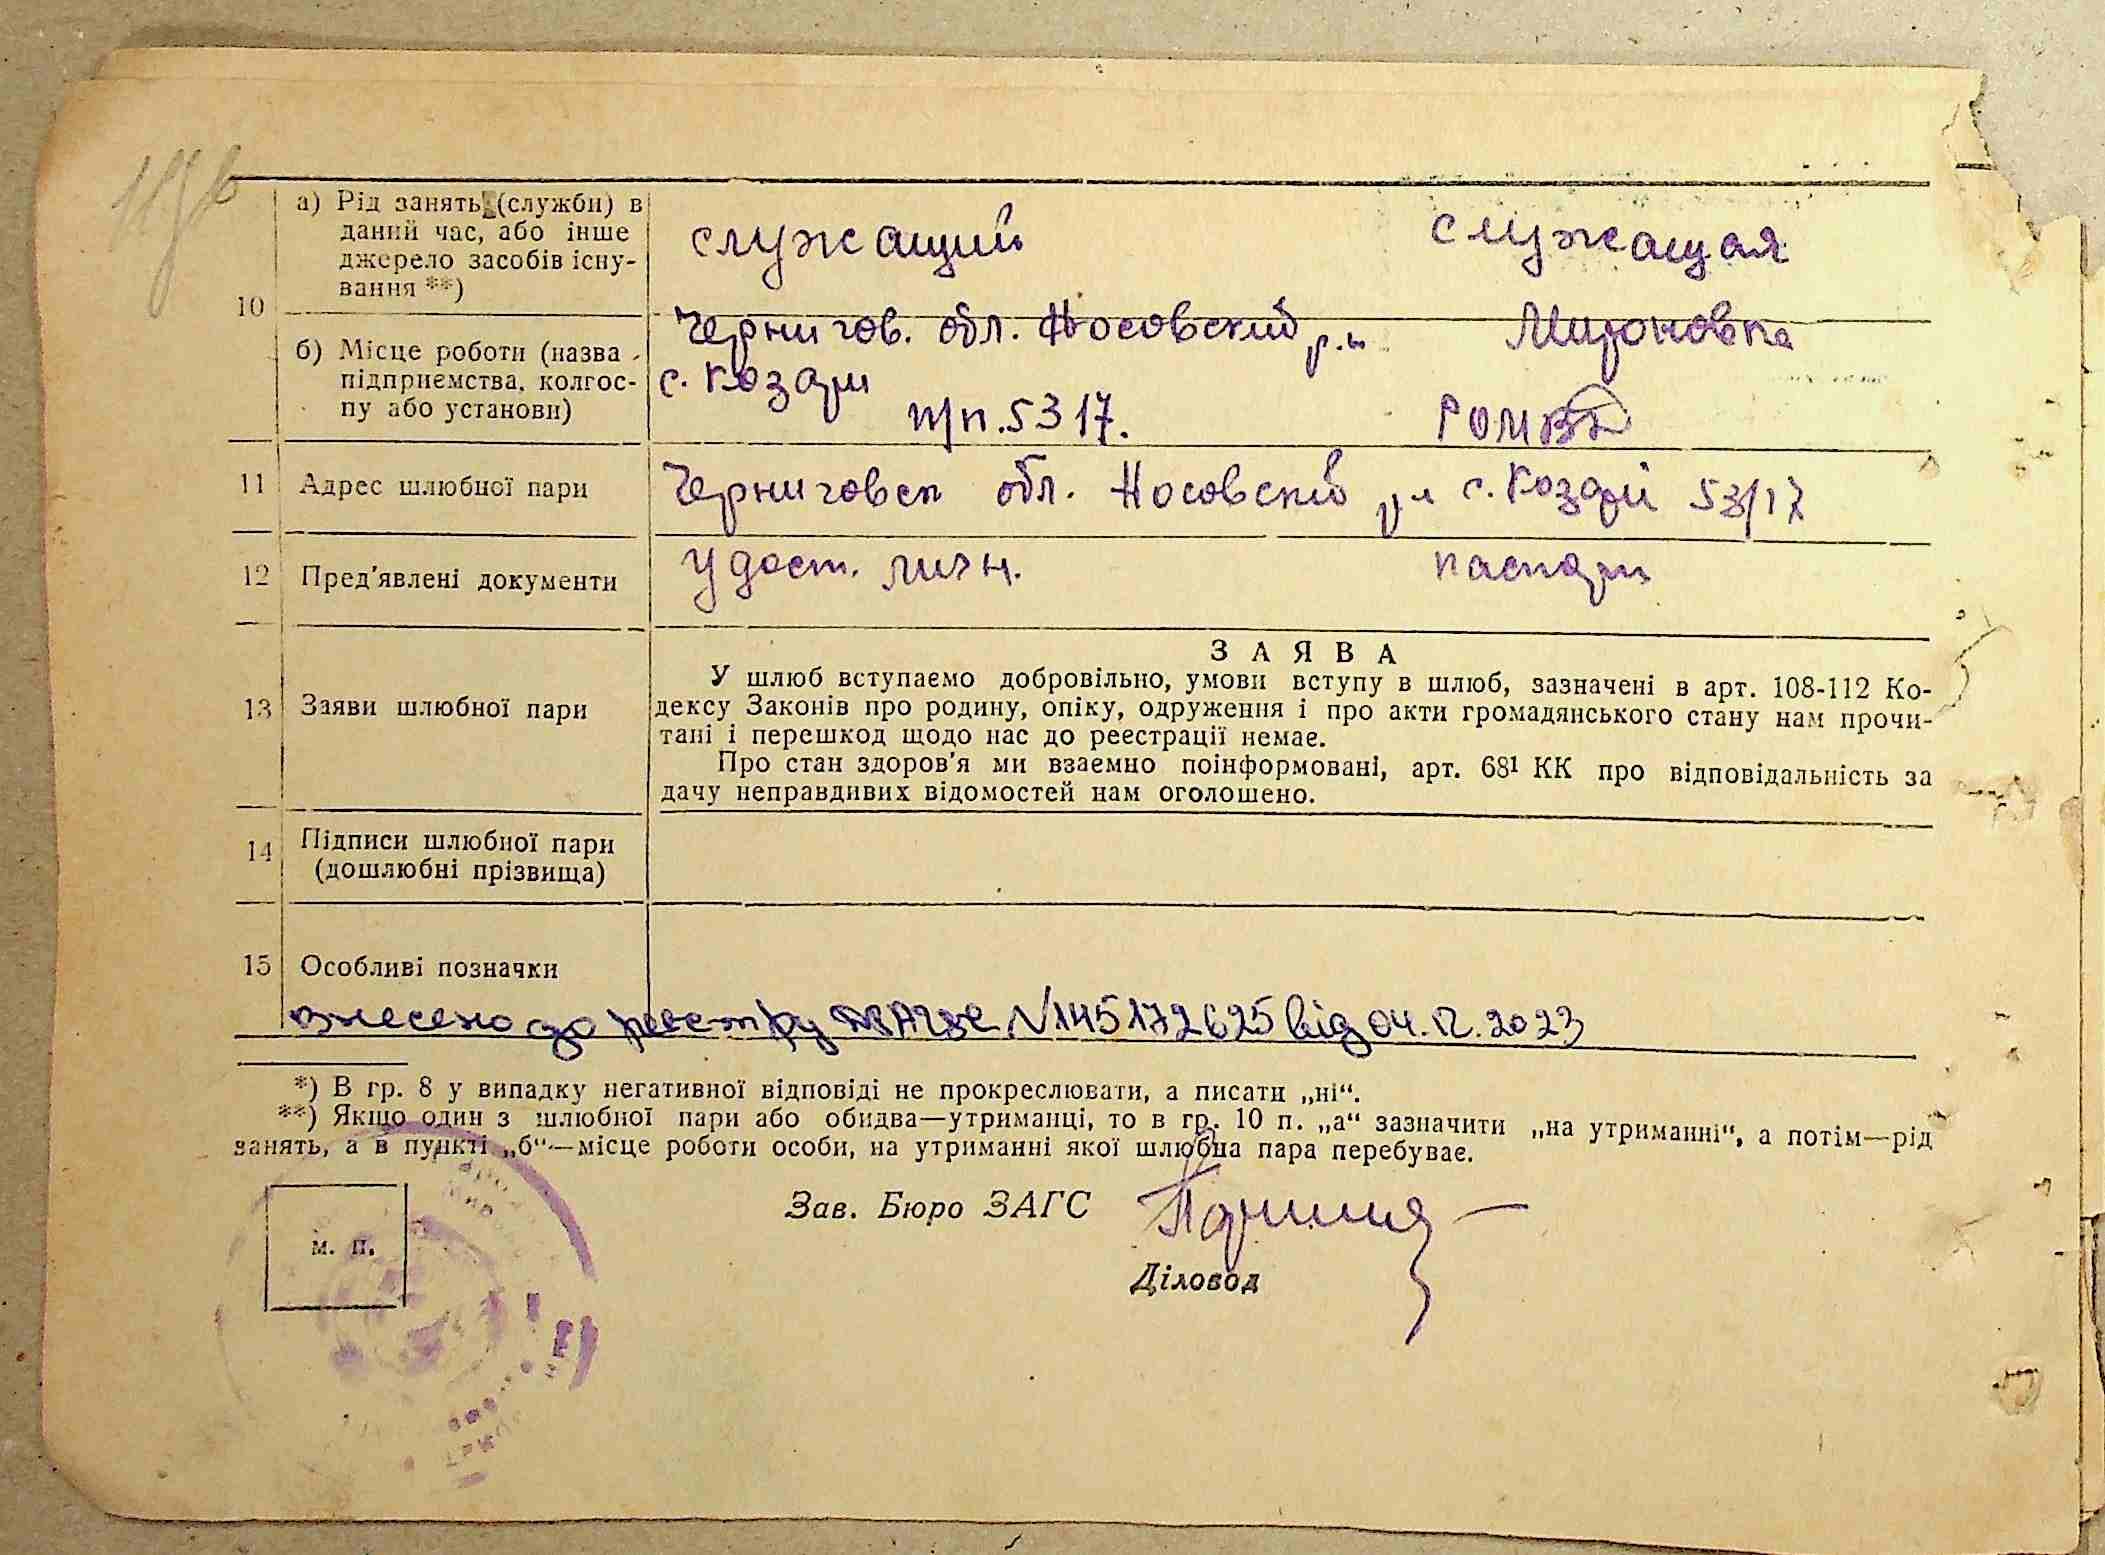 а) Рід занять (служби) в
даний час, або інше
джерело засобів існу-
вання **)
служащий
служащая
10
б) Місце роботи (назва
підприємства, колгос-
пу або установи)
Чернигов. обл. Носовский р.н
с. Козары
п/п. 5317.
Мироновка
РОМВД
11 Адрес шлюбної пари
Черниговск обл. Носовский рн с. Козары 53/17
12 Пред'явлені документи
Удост. личн.
паспорт
13 Заяви шлюбної пари
ЗАЯВА
У шлюб вступаємо добровільно, умови вступу в шлюб, зазначені в арт. 108-112 Ко-
дексу Законів про родину, опіку, одруження і про акти громадянського стану нам прочи-
тані і перешкод щодо нас до реєстрації немає.
Про стан здоров'я ми взаємно поінформовані, арт. 68¹ КК про відповідальність за
дачу неправдивих відомостей нам оголошено.
14 Підписи шлюбної пари
(дошлюбні прізвища)
15 Особливі позначки
внесено до реєстру ДРАЦС №145172625 від 04.12.2023
*) В гр. 8 у випадку негативної відповіді не прокреслювати, а писати „ні“.
**) Якщо один з шлюбної пари або обидва—утриманці, то в гр. 10 п. „а“ зазначити „на утриманні“, а потім—рід
занять, а в пункті „б“—місце роботи особи, на утриманні якої шлюбна пара перебуває.
Зав. Бюро ЗАГС
м. п.
Діловод